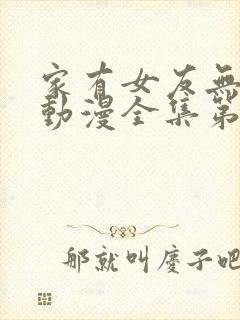 家有女友無
動漫全集第
那就叫慶子吧